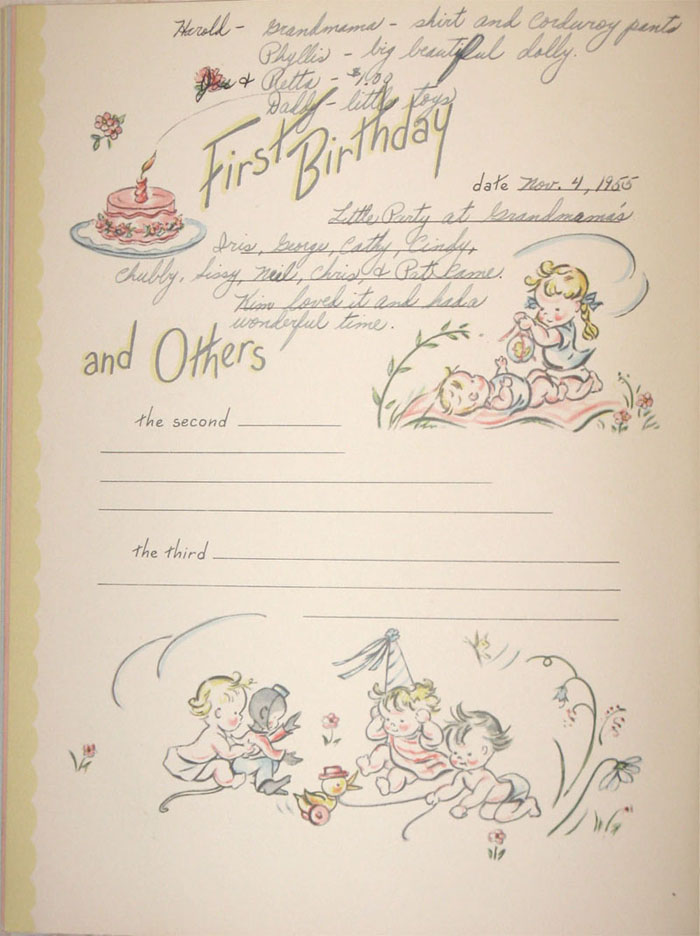 Herold - Grandmama - shirt and corduroy pants
Phyllis - big beautiful dolly.
& Retta - $1.00
Daddy - little toys
First Birthday
date Nov. 4, 1955
Little Party at Grandmama's
Iris, George, Cathy, Cindy,
Chubby, Sissy, Neil, Chris, & Pat came.
Kim loved it and had a
wonderful time.
and Others
the second
the third